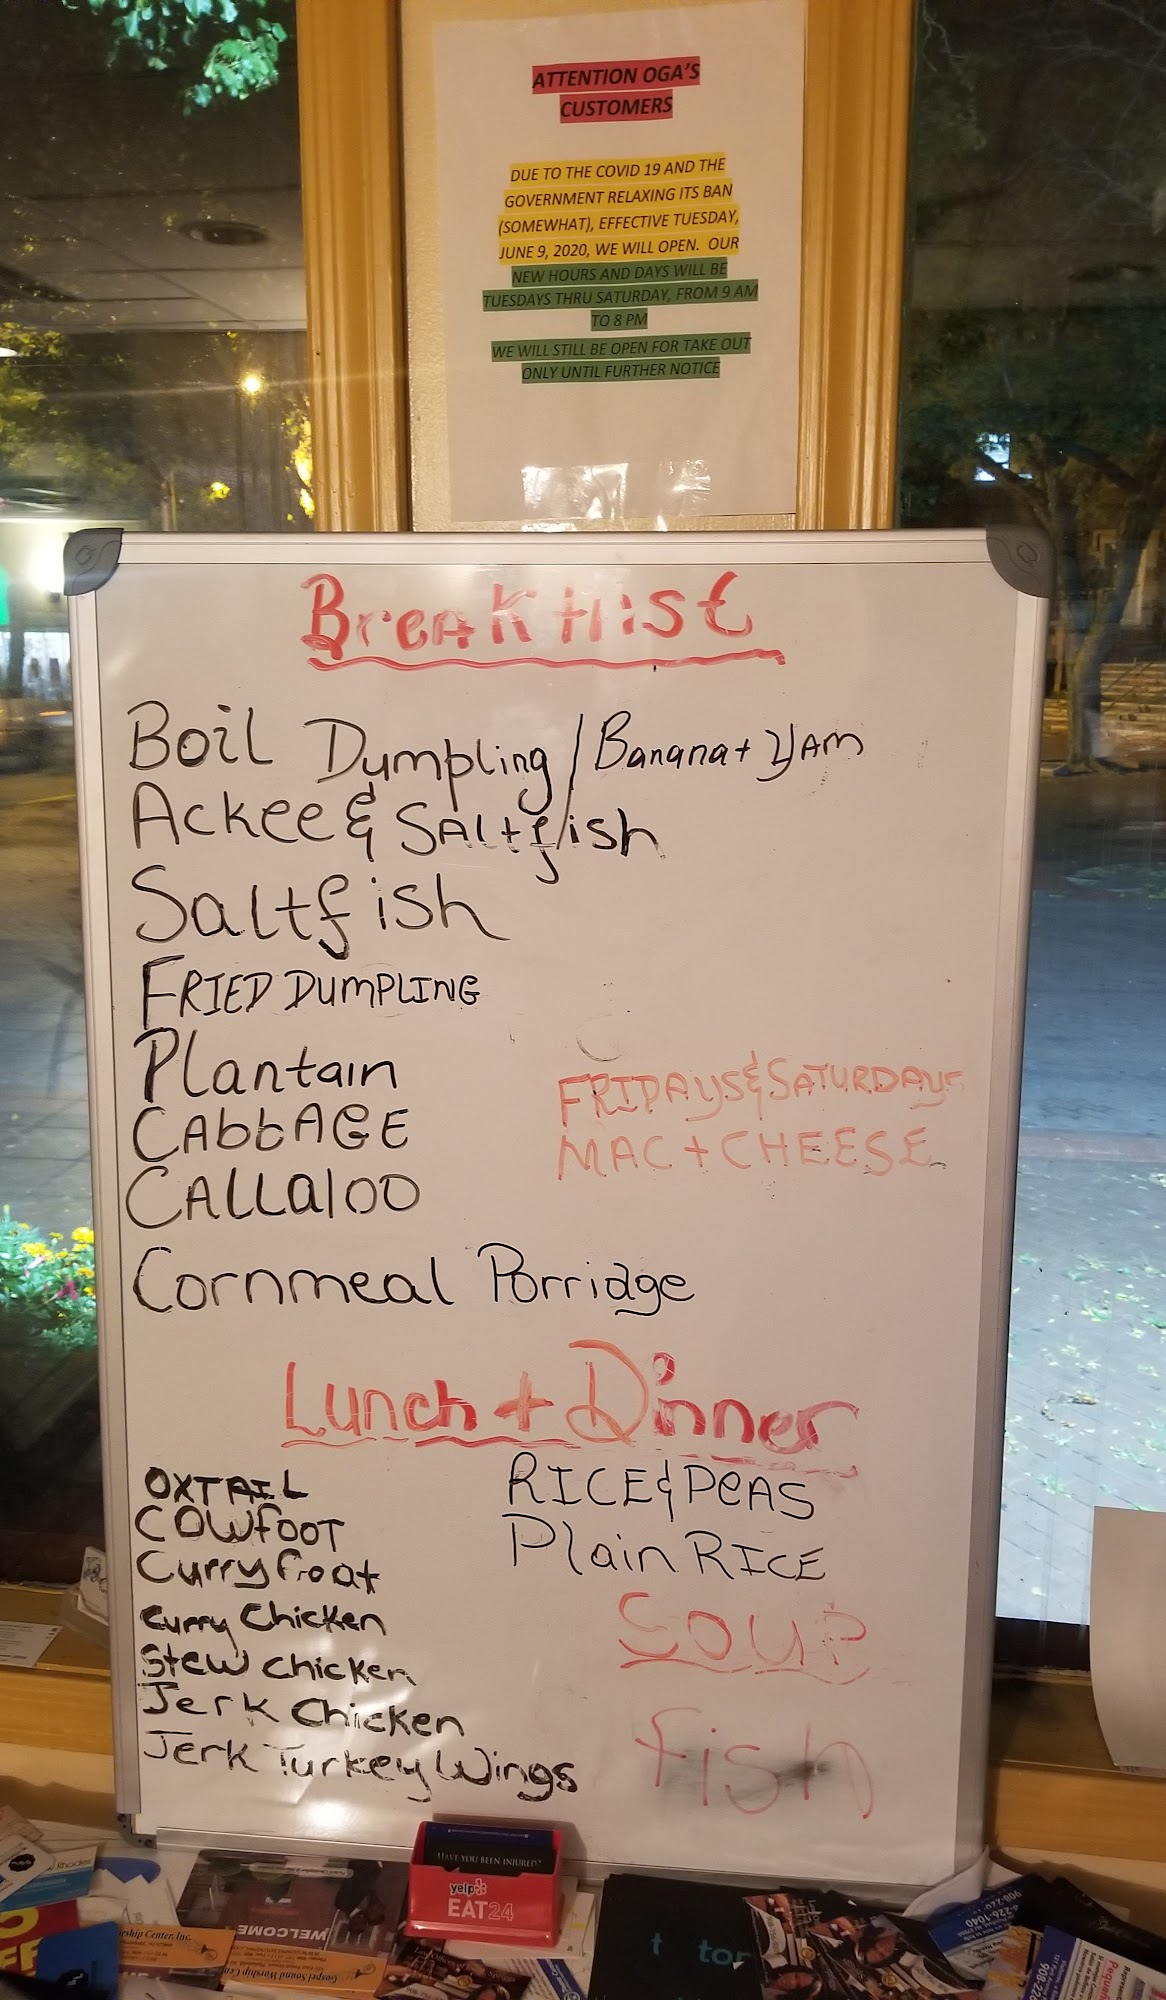 ATTENTION OGA'S
CUSTOMERS
DUE TO THE COVID 19 AND THE
GOVERNMENT RELAXING ITS BAN
(SOMEWHAT), EFFECTIVE TUESDAY,
JUNE 9, 2020, WE WILL OPEN. OUR
NEW HOURS AND DAYS WILL BE
TUESDAYS THRU SATURDAY, FROM 9 AM
TO 8 PM
WE WILL STILL BE OPEN FOR TAKE OUT
ONLY UNTIL FURTHER NOTICE
Breakfast
Boil Dumpling / Banana + YAM
Ackee & SALtfish
Saltfish
FRIED DUMPLING
Plantain
CAbbAGE
CALLaloo
Cornmeal Porridge
FRIDAYS & SATURDAYS
MAC + CHEESE
Lunch + Dinner
OXTAIL
COWfOOT
Curry Goat
Curry Chicken
Stew chicken
Jerk Chicken
Jerk Turkey Wings
RICE & PeAS
Plain RICE
Soup
fish
HAVE YOU BEEN INJURED?
yelp
EAT24
WELCOME
Worship Center, Inc.
Gospel Sound Worship Center
t tor
226-1040
908-226